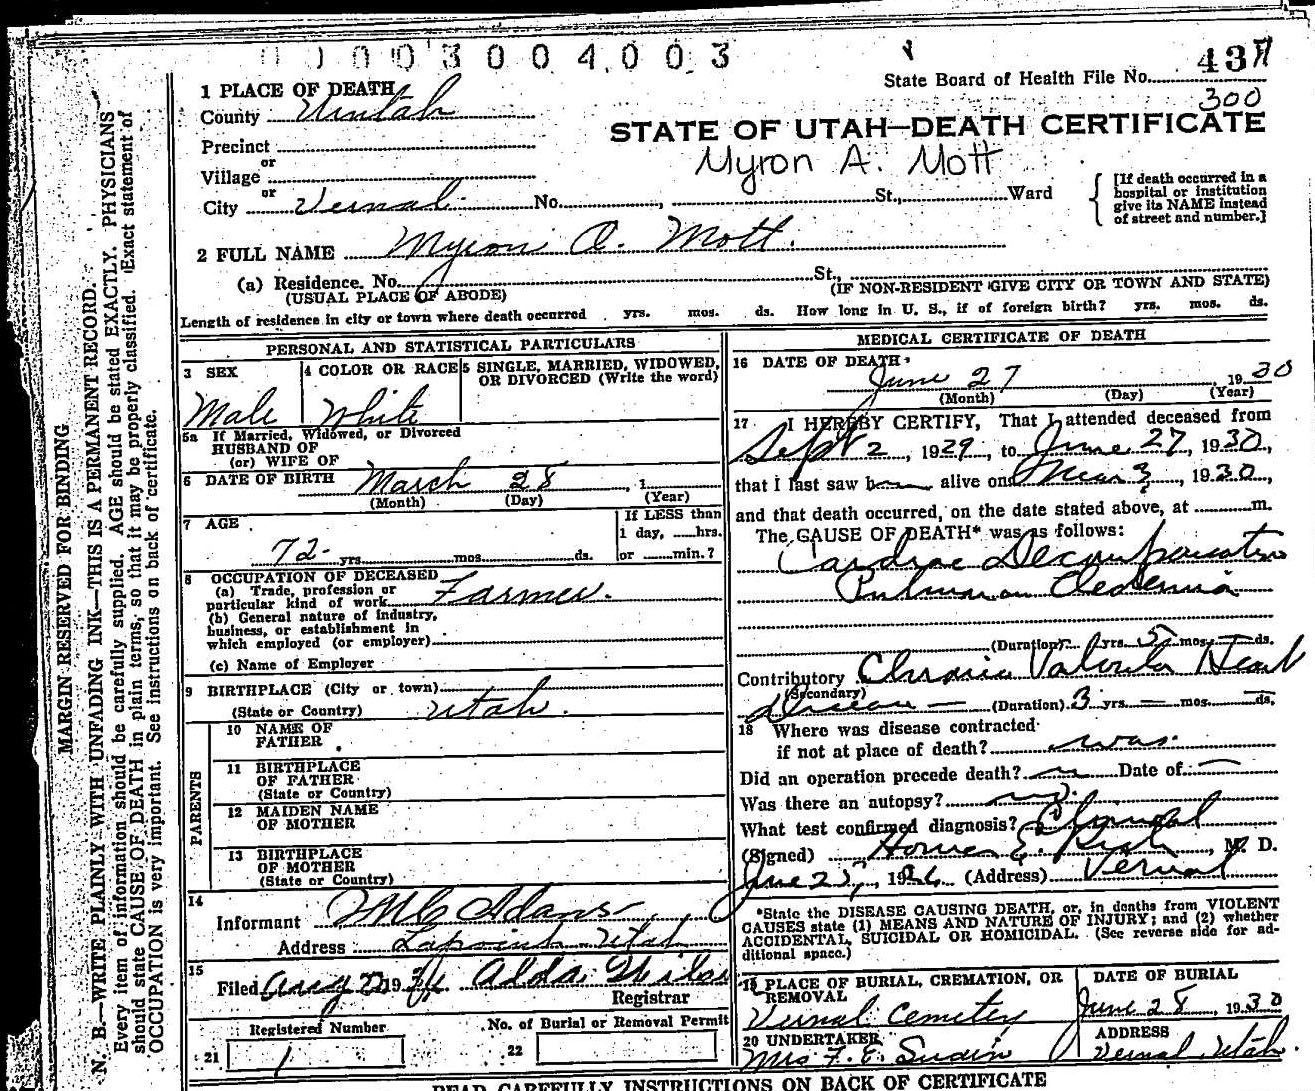 0 1 0 0 3 0 0 4 0 0 3
State Board of Health File No. 437
300
1 PLACE OF DEATH
County Uintah
STATE OF UTAH—DEATH CERTIFICATE
Precinct
or
Myron A. Mott
Village
or
City Vernal No. , St., Ward
[If death occurred in a
hospital or institution
give its NAME instead
of street and number.]
2 FULL NAME Myron A. Mott.
(a) Residence. No. St.,
(USUAL PLACE OF ABODE) (IF NON-RESIDENT GIVE CITY OR TOWN AND STATE)
Length of residence in city or town where death occurred yrs. mos. ds. How long in U. S., if of foreign birth? yrs. mos. ds.
PERSONAL AND STATISTICAL PARTICULARS
3 SEX
Male
4 COLOR OR RACE
White
5 SINGLE, MARRIED, WIDOWED,
OR DIVORCED (Write the word)
5a If Married, Widowed, or Divorced
HUSBAND OF
(or) WIFE OF
6 DATE OF BIRTH March 28, 1
(Month) (Day) (Year)
7 AGE
72 yrs. mos. ds.
If LESS than
1 day, hrs.
or min.?
8 OCCUPATION OF DECEASED
(a) Trade, profession or
particular kind of work Farmer.
(b) General nature of industry,
business, or establishment in
which employed (or employer)
(c) Name of Employer
9 BIRTHPLACE (City or town)
(State or Country) Utah.
PARENTS
10 NAME OF
FATHER
11 BIRTHPLACE
OF FATHER
(State or Country)
12 MAIDEN NAME
OF MOTHER
13 BIRTHPLACE
OF MOTHER
(State or Country)
14
Informant Adams
Address Lapoint Utah
15
Filed Aug 19 Alda
Registrar
Registered Number
21 1
No. of Burial or Removal Permit
22
MEDICAL CERTIFICATE OF DEATH
16 DATE OF DEATH
June 27 1930
(Month) (Day) (Year)
17 I HEREBY CERTIFY, That I attended deceased from
Sept 2, 1929, to June 27, 1930,
that I last saw h alive on 3, 1930,
and that death occurred, on the date stated above, at m.
The CAUSE OF DEATH* was as follows:
Cardiac Decompensation
Pulmonary Oedemia
(Duration) yrs. 5 mos. ds.
Contributory Chronic Valvular Heart
(Secondary)
disease — (Duration) 3 yrs. — mos. — ds.
18 Where was disease contracted
if not at place of death? was.
Did an operation precede death? Date of —
Was there an autopsy? no.
What test confirmed diagnosis? Clinical
(Signed) Homer E. Rich, M. D.
June 25, 19 (Address) Vernal
*State the DISEASE CAUSING DEATH, or, in deaths from VIOLENT
CAUSES state (1) MEANS AND NATURE OF INJURY; and (2) whether
ACCIDENTAL, SUICIDAL OR HOMICIDAL. (See reverse side for ad-
ditional space.)
19 PLACE OF BURIAL, CREMATION, OR
REMOVAL
Vernal Cemetery
DATE OF BURIAL
June 28, 1930
20 UNDERTAKER
Mrs F. E. Swain
ADDRESS
Vernal, Utah.
READ CAREFULLY INSTRUCTIONS ON BACK OF CERTIFICATE
MARGIN RESERVED FOR BINDING
N. B.—WRITE PLAINLY WITH UNFADING INK—THIS IS A PERMANENT RECORD.
Every item of information should be carefully supplied. AGE should be stated EXACTLY. PHYSICIANS
should state CAUSE OF DEATH in plain terms, so that it may be properly classified. Exact statement of
OCCUPATION is very important. See instructions on back of certificate.